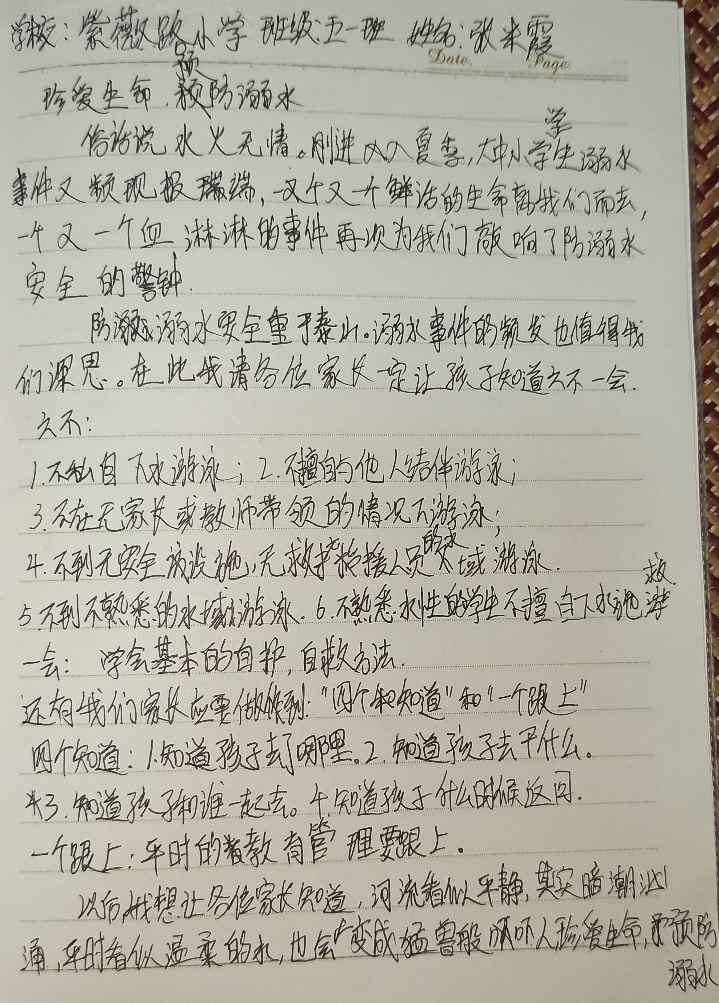 学校：紫薇路小学 班级：五一班 姓名：张米霞
Date. Page.
珍爱生命，预防溺水
俗话说 水火无情。刚进入入夏季，大中小学生溺水
事件又频现报端，一个又一个鲜活的生命离我们而去，
一个又一个血淋淋的事件再次为我们敲响了防溺水
安全的警钟.
防溺溺水安全重于泰山。溺水事件的频发也值得我
们深思。在此我请各位家长一定让孩子知道六不一会.
六不：
1.不私自下水游泳；2.不擅自与他人结伴游泳；
3.不在无家长或教师带领的情况下游泳；
4.不到无安全设施、无救护人员的水域游泳.
5.不到不熟悉的水域游泳.6.不熟悉水性的学生不擅自下水施救
一会：学会基本的自护，自救方法.
还有我们家长应要做到："四个知道"和"一个跟上"
四个知道：1.知道孩子去了哪里。2.知道孩子去干什么。
3.知道孩子和谁一起去。4.知道孩子什么时候返回.
一个跟上：平时的教育管理要跟上。
以后，我想让各位家长知道，河流看似平静，其实暗潮汹
涌，平时看似温柔的水，也会变成猛兽般吓人，珍爱生命，预防
溺水